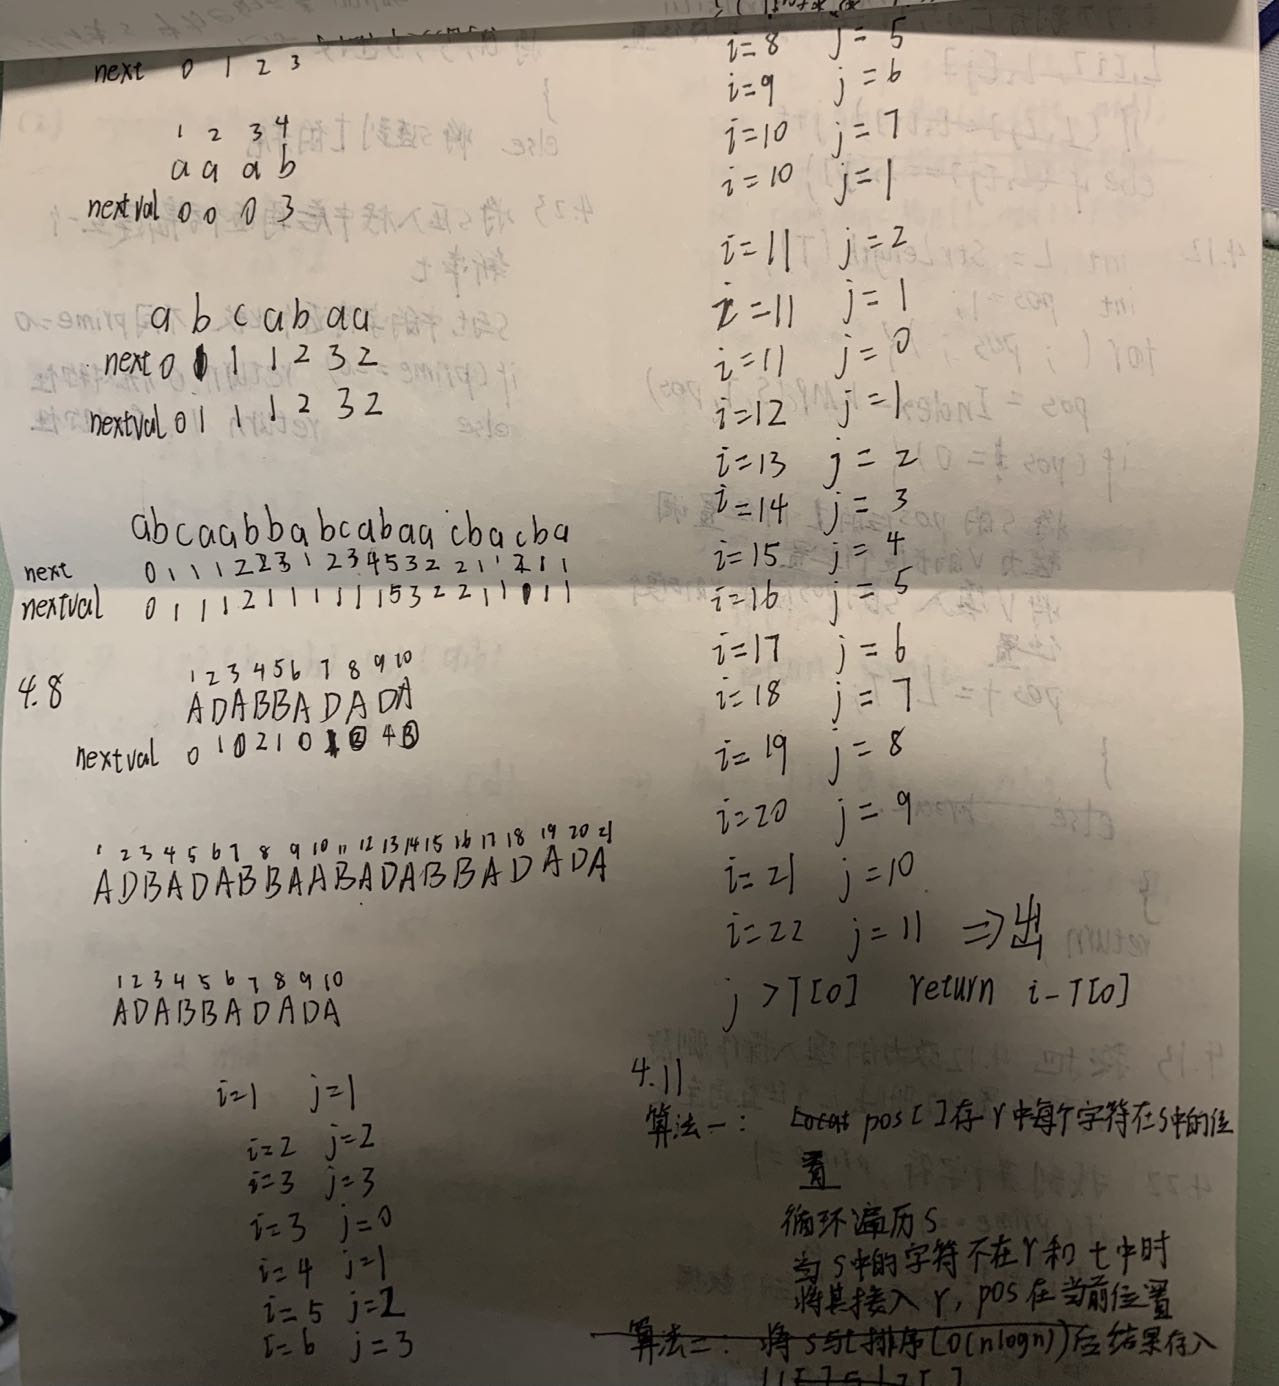 next 0 1 2 3
1 2 3 4
a a a b
nextval 0 0 0 3
a b c a b a a
next 0 1 1 1 2 3 2
nextval 0 1 1 1 2 3 2
abcaabbabcabaacbacba
next 0 1 1 1 2 2 3 1 2 3 4 5 3 2 2 1 1 2 1 1
nextval 0 1 1 1 2 1 1 1 1 1 1 5 3 2 2 1 1 1 1
4.8
1 2 3 4 5 6 7 8 9 10
ADABBADADA
nextval 0 1 0 2 1 0 1 0 4 3
1 2 3 4 5 6 7 8 9 10 11 12 13 14 15 16 17 18 19 20 21
ADBADABBAABADABBADADA
1 2 3 4 5 6 7 8 9 10
ADABBADADA
i=1 j=1
i=2 j=2
i=3 j=3
i=3 j=0
i=4 j=1
i=5 j=2
i=6 j=3
i=8 j=5
i=9 j=6
i=10 j=7
i=10 j=1
i=11 j=2
i=11 j=1
i=11 j=0
i=12 j=1
i=13 j=2
i=14 j=3
i=15 j=4
i=16 j=5
i=17 j=6
i=18 j=7
i=19 j=8
i=20 j=9
i=21 j=10
i=22 j=11 ⇒出
j>T[0] return i-T[0]
4.11
算法一: pos[]存r中每个字符在s中的位
置
循环遍历s
当s中的字符不在r和t中时
将其接入r,pos在当前位置
算法二: 将s与t排序(O(nlogn))后结果存入